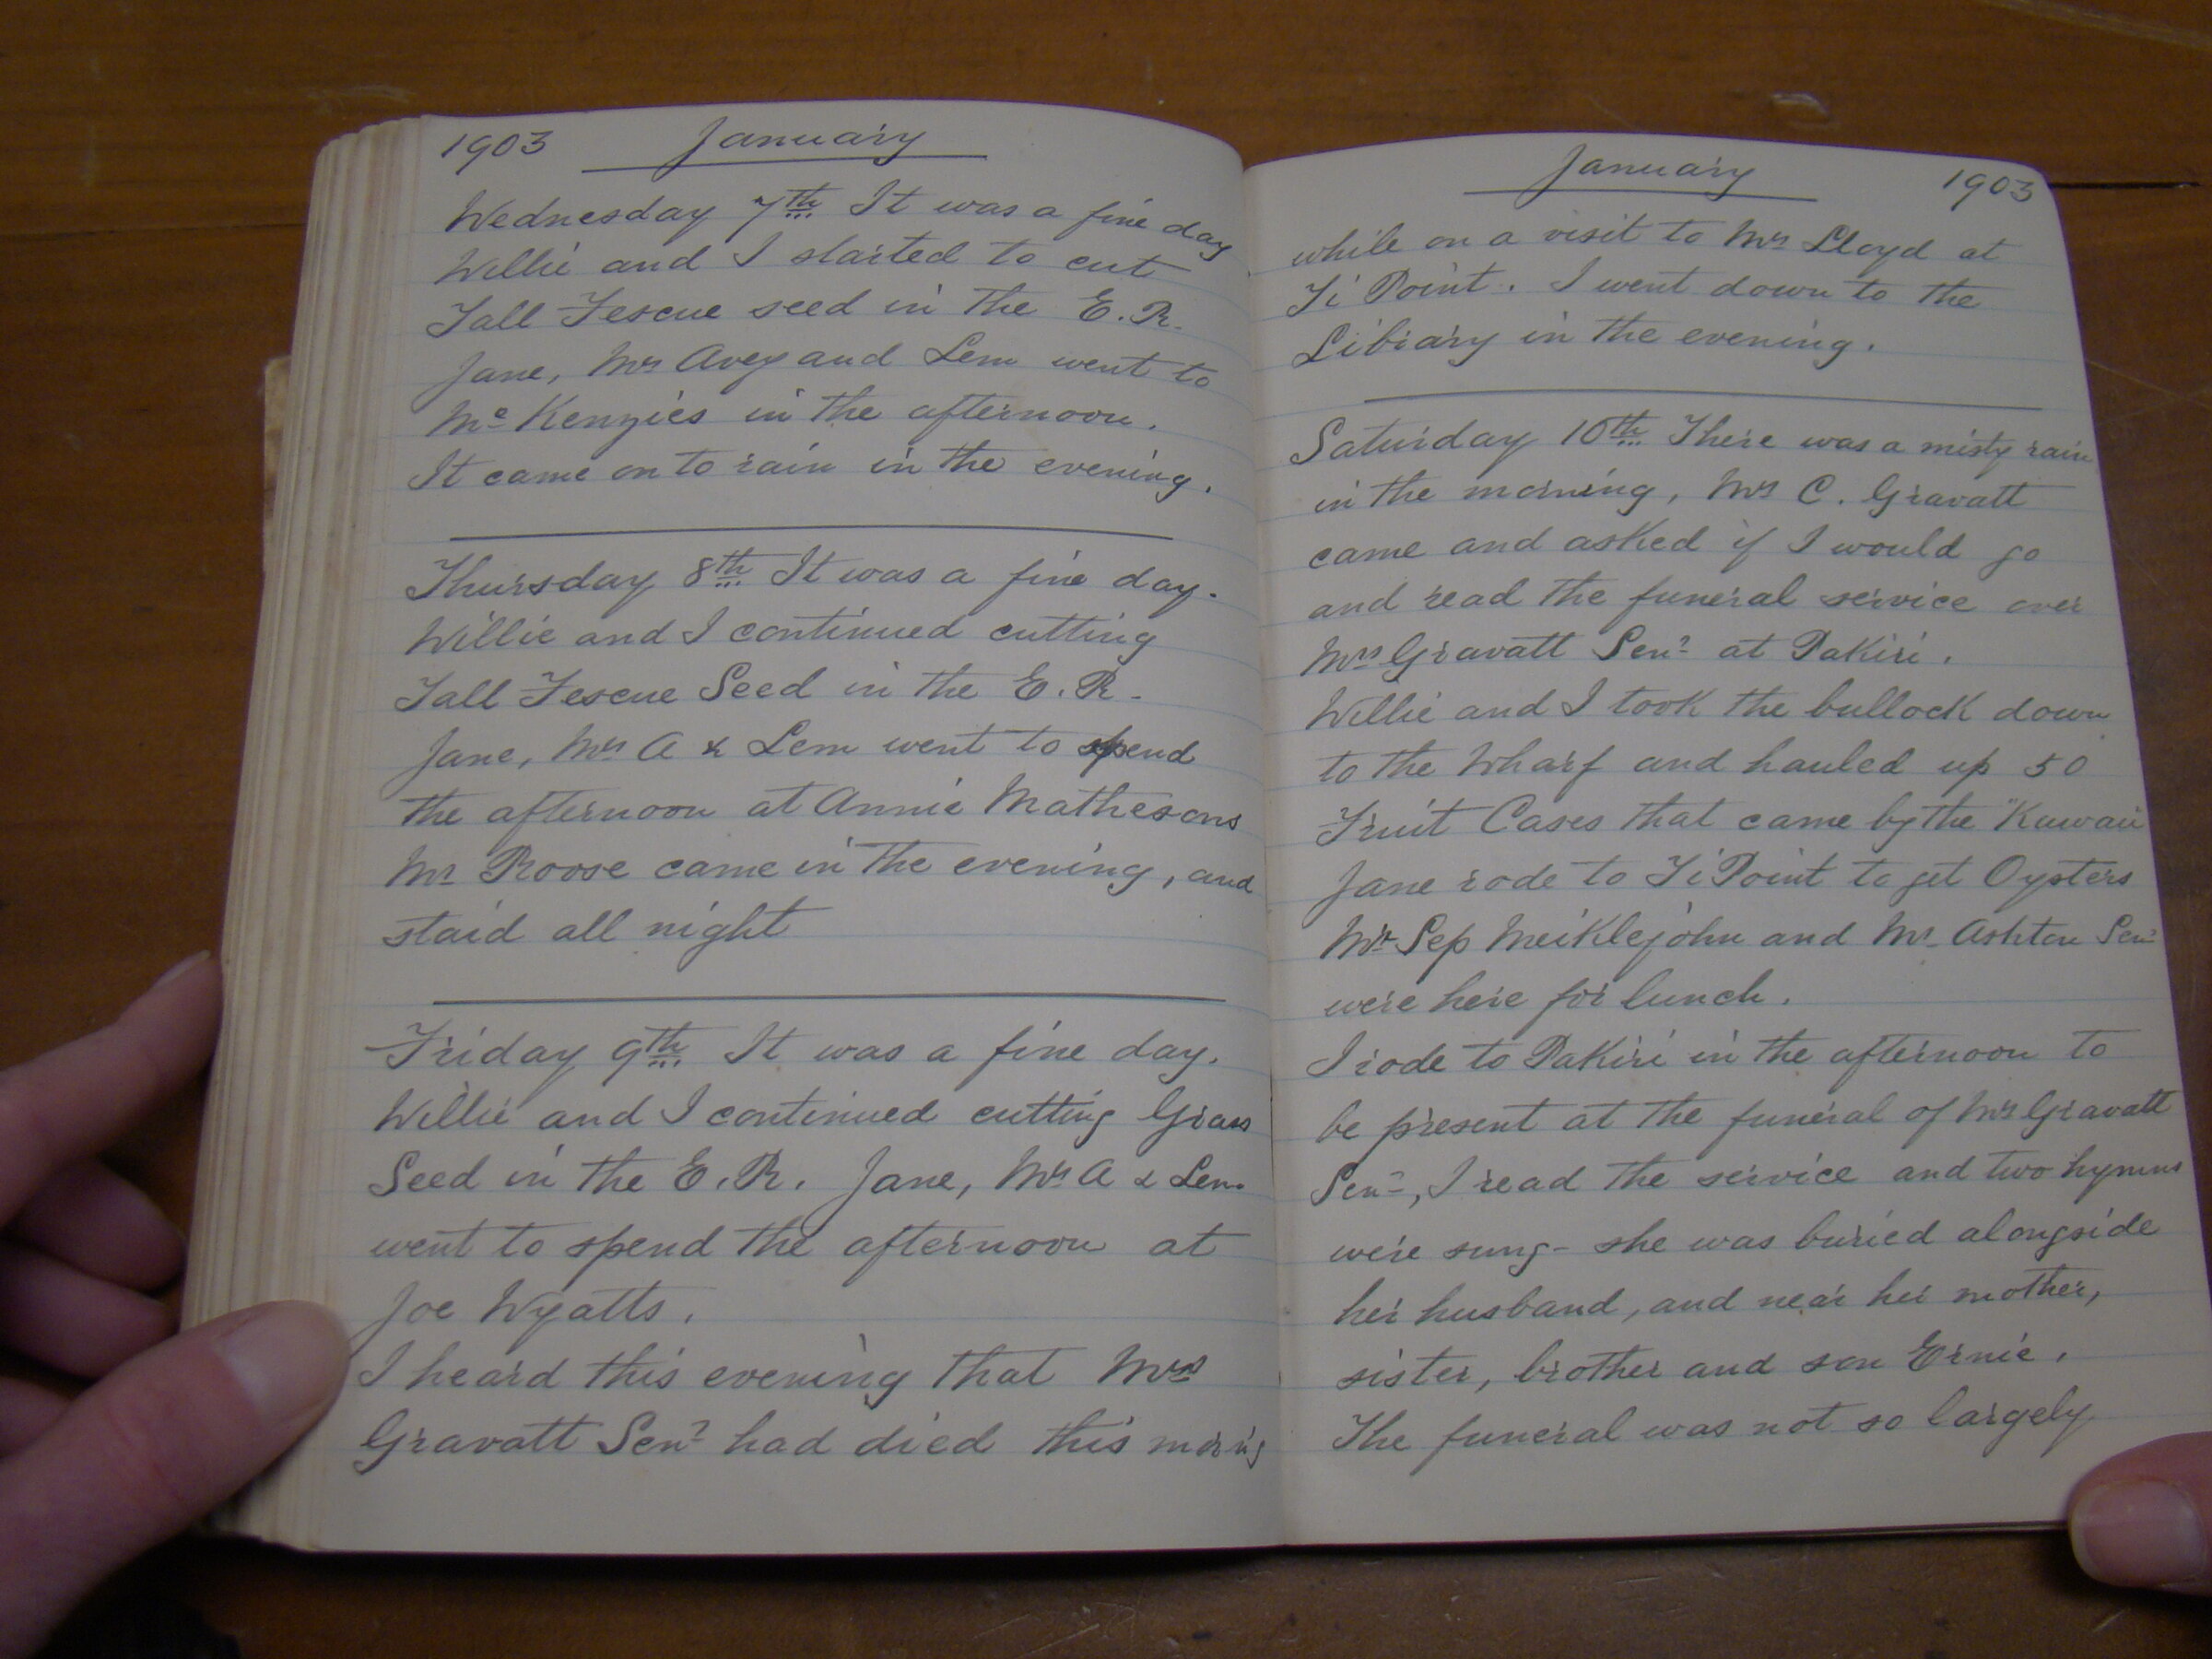 1903 January
Wednesday 7th It was a fine day
Willie and I started to cut
Tall Fescue seed in the E. R.
Jane, Mrs Avey and Lem went to
Mc Kenzies in the afternoon.
It came on to rain in the evening.
Thursday 8th It was a fine day.
Willie and I continued cutting
Tall Fescue Seed in the E. R.
Jane, Mrs A & Lem went to spend
the afternoon at Annie Mathesons
Mr Roose came in the evening, and
staid all night
Friday 9th It was a fine day.
Willie and I continued cutting Grass
Seed in the E. R. Jane, Mrs A & Lem
went to spend the afternoon at
Joe Wyatts.
I heard this evening that Mrs
Gravatt Senr had died this morng
January 1903
while on a visit to Mrs Lloyd at
Ti Point. I went down to the
Library in the evening.
Saturday 10th There was a misty rain
in the morning, Mrs C. Gravatt
came and asked if I would go
and read the funeral service over
Mrs Gravatt Senr at Pakiri.
Willie and I took the bullock down
to the Wharf and hauled up 50
Fruit Cases that came by the "Kawau"
Jane rode to Ti Point to get Oysters
Mr Sep Meiklejohn and Mr Ashton Senr
were here for lunch.
I rode to Pakiri in the afternoon to
be present at the funeral of Mrs Gravatt
Senr, I read the service and two hymns
were sung - she was buried alongside
her husband, and near her mother,
sister, brother and son Ernie.
The funeral was not so largely